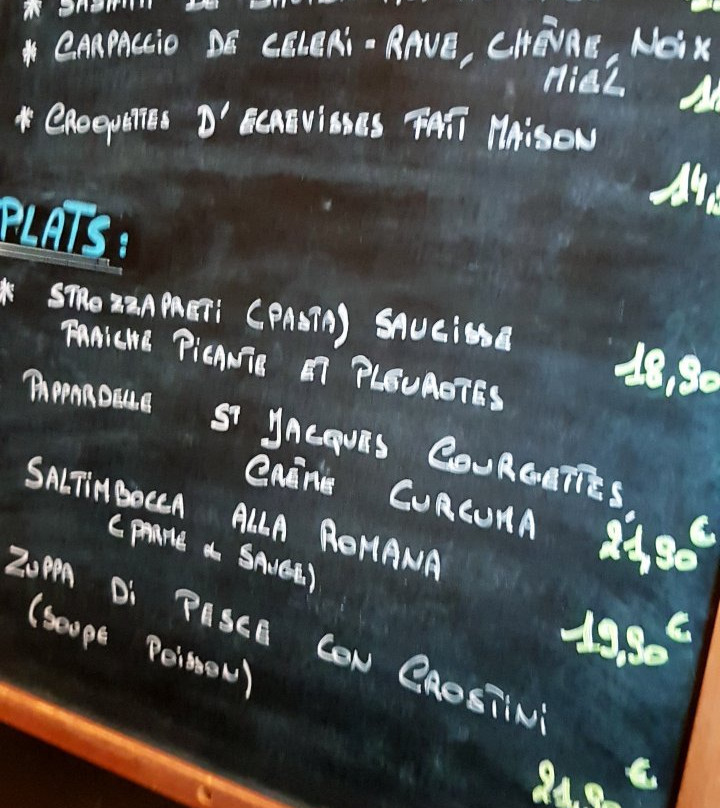 * CARPACCIO DE CELERI-RAVE, CHÈVRE, NOIX
MIEL
* CROQUETTES D'ECREVISSES FAIT MAISON
14,
PLATS:
* STROZZAPRETI (PASTA) SAUCISSE
FRAICHE PICANTE ET PLEUROTES
18,90
PAPPARDELLE ST JACQUES COURGETTES,
CRÈME CURCUMA
21,90€
SALTIMBOCCA ALLA ROMANA
(PARME & SAUGE)
19,90€
ZUPPA Di PESCE CON CROSTINI
(SOUPE POISSON)
21,90€